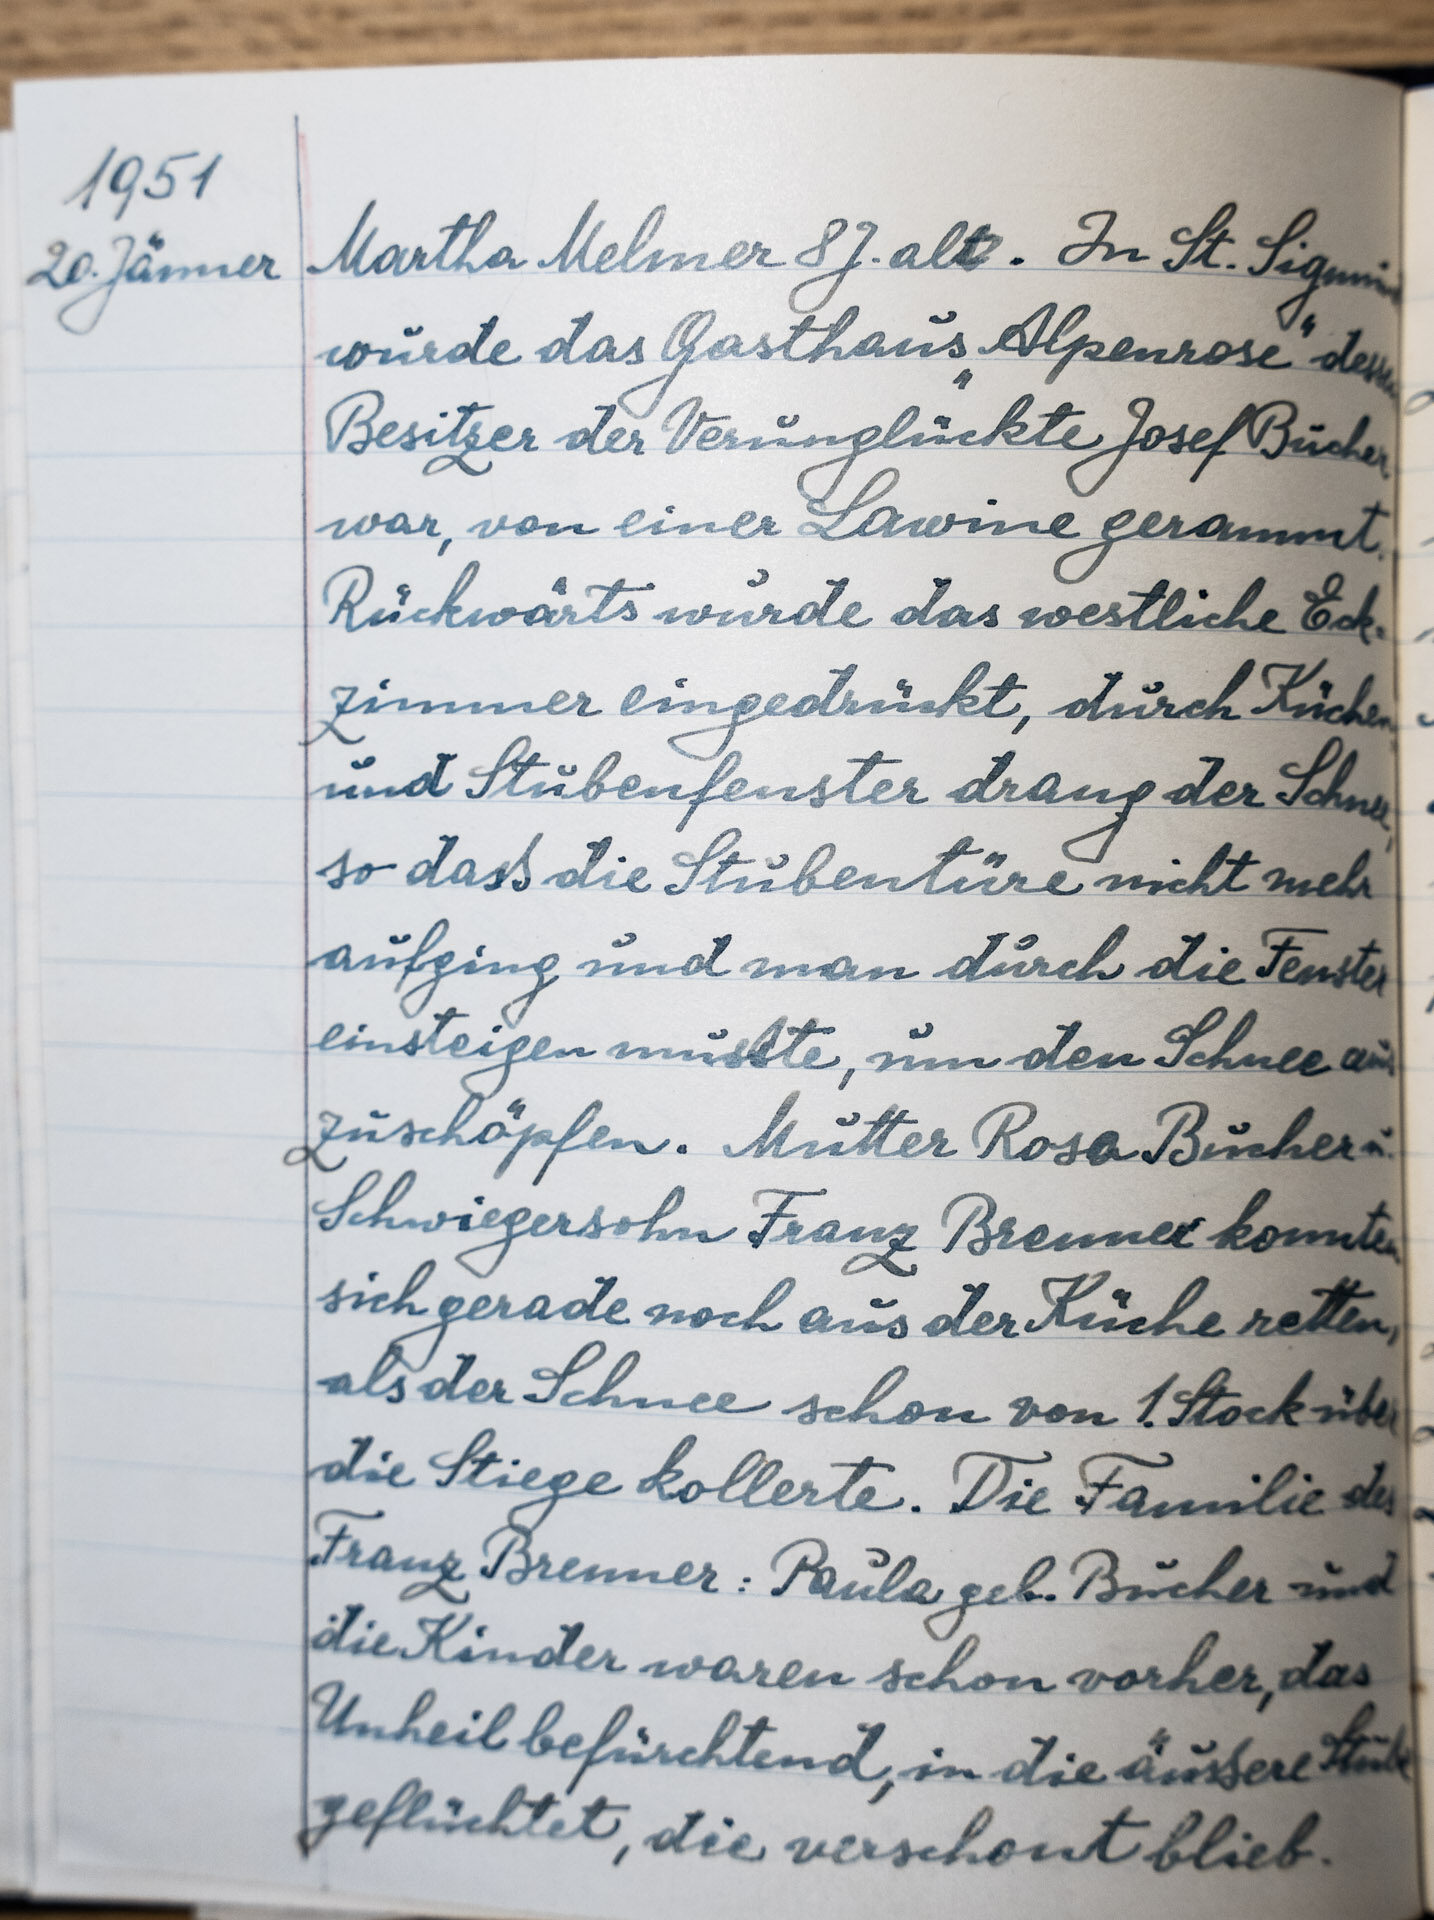 1951
20. Jänner Martha Melmer 8 J. alt. In St. Sigmund
wurde das Gasthaus „Alpenrose" dessen
Besitzer der Verunglückte Josef Bucher
war, von einer Lawine gerammt.
Rückwärts wurde das westliche Eck-
zimmer eingedrückt, durch Küchen-
und Stubenfenster drang der Schnee,
so daß die Stubentüre nicht mehr
aufging und man durch die Fenster
einsteigen mußte, um den Schnee aus
zuschöpfen. Mutter Rosa Bucher u.
Schwiegersohn Franz Brenner konnten
sich gerade noch aus der Küche retten,
als der Schnee schon von 1. Stock über
die Stiege kollerte. Die Familie des
Franz Brenner: Paula geb. Bucher und
die Kinder waren schon vorher, das
Unheil befürchtend, in die äußere Stube
geflüchtet, die verschont blieb.